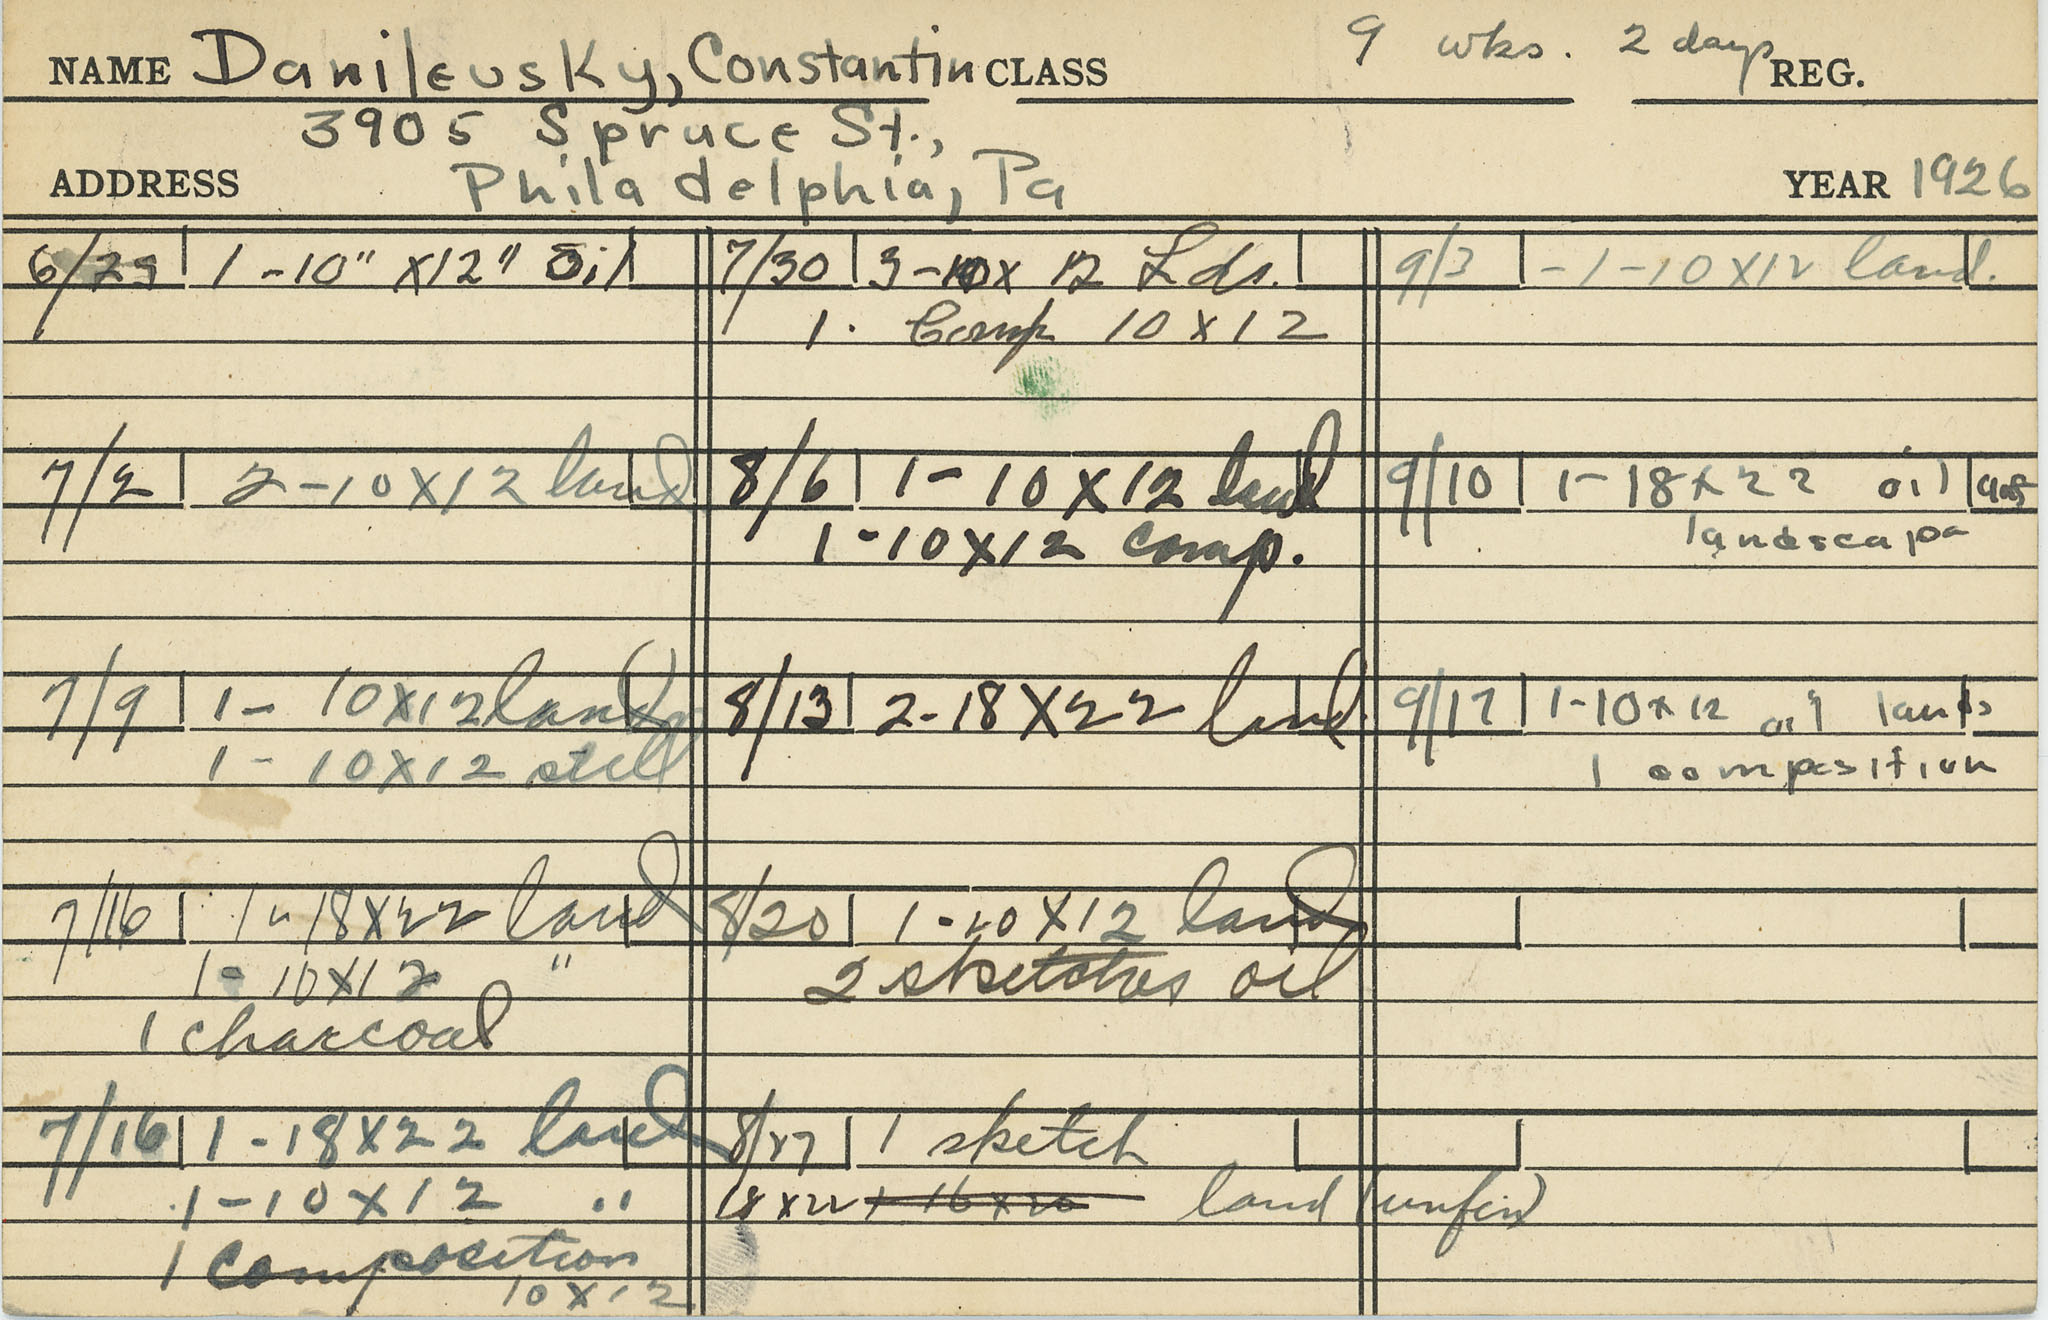 NAME Danilevsky, Constantin CLASS 9 wks. 2 days REG.
3905 Spruce St.,
ADDRESS Philadelphia, Pa YEAR 1926
6/25 1-10" x12" Oil
7/2 2-10X12 land
7/9 1- 10X12 land
1- 10X12 still
7/16 1-18X22 land
1-10X12 "
1 charcoal
7/16 1-18X22 land
1-10X12 "
1 composition
10X12
7/30 3-10x 12 Lds.
1. Comp 10x12
8/6 1-10X12 land
1-10X12 comp.
8/13 2-18X22 land.
8/20 1-10X12 land
2 sketches oil
8/27 1 sketch
18x22 1 16x20 land (unfin)
9/3 -1-10X12 land.
9/10 1-18x22 oil
landscape
9/17 1-10x12 oil lands
1 composition